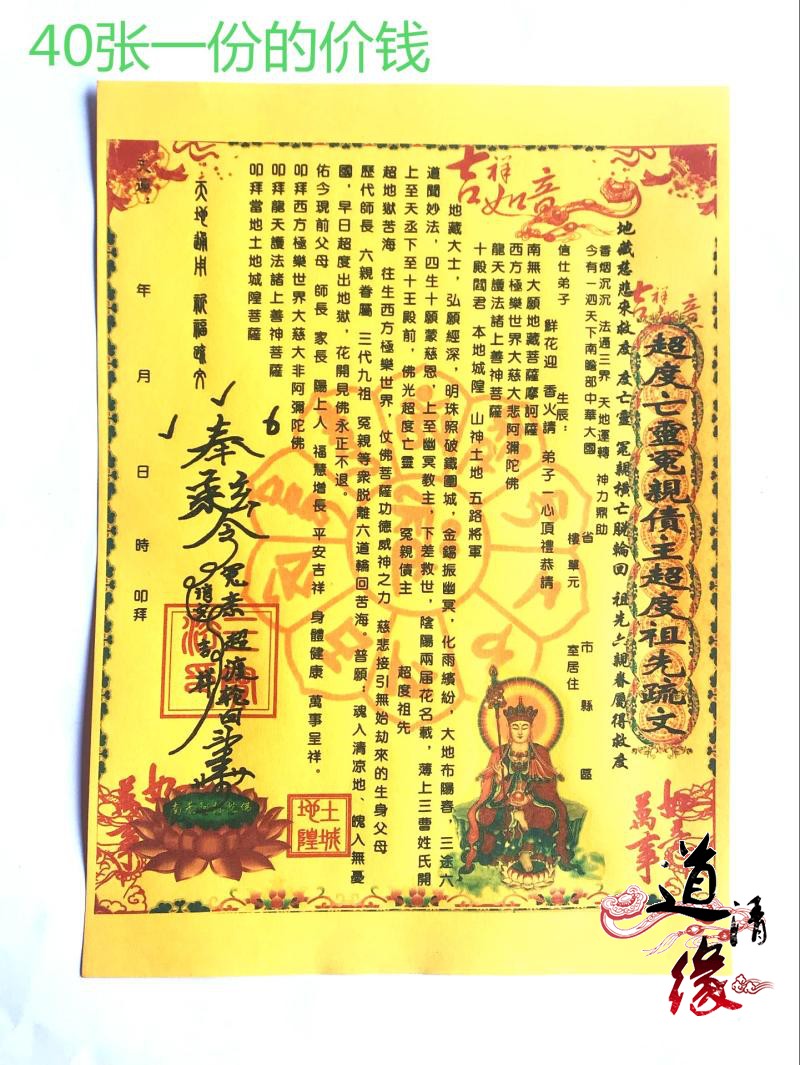 40张一份的价钱
吉祥如意
吉祥如意
超度亡靈冤親債主超度祖先疏文
地藏慈悲來救度 度亡靈 冤親橫亡脱輪回 祖先六親眷屬得救度
香烟沉沉 法通三界 天地運轉 神力鼎助
今有一泗天下南瞻部中華大國 省 市 縣 區
樓 單元 室居住
信仕弟子 生辰：
鮮花迎 香火請 弟子一心頂禮恭請
南無大願地藏菩薩摩訶薩
西方極樂世界大慈大悲阿彌陀佛
龍天護法諸上善神菩薩
十殿閻君 本地城隍 山神土地 五路將軍
地藏大士，弘願經深，明珠照破鐵圍城，金錫振幽冥，化雨繽紛，大地布陽春，三途六
道聞妙法，四生十願蒙慈恩，上至幽冥教主，下差救世，陰陽兩届花名載，薄上三曹姓氏開
上至天丞下至十王殿前，佛光超度亡靈 冤親債主 超度祖先
超地獄苦海 往生西方極樂世界，仗佛菩薩功德威神之力 慈悲接引無始劫來的生身父母
歷代師長 六親眷屬 三代九祖 冤親等衆脱離六道輪回苦海。普願：魂入清凉地、魄入無憂
國，早日超度出地獄，花開見佛永正不退。
佑今現前父母 師長 家長 陽上人 福慧增長 平安吉祥 身體健康 萬事呈祥。
叩拜西方極樂世界大慈大非阿彌陀佛
叩拜龍天護法諸上善神菩薩
叩拜當地土地城隍菩薩
天地通用 祈福疏文
天運： 年 月 日 時 叩拜
奉
土城地隍
如意
萬事
道清缘